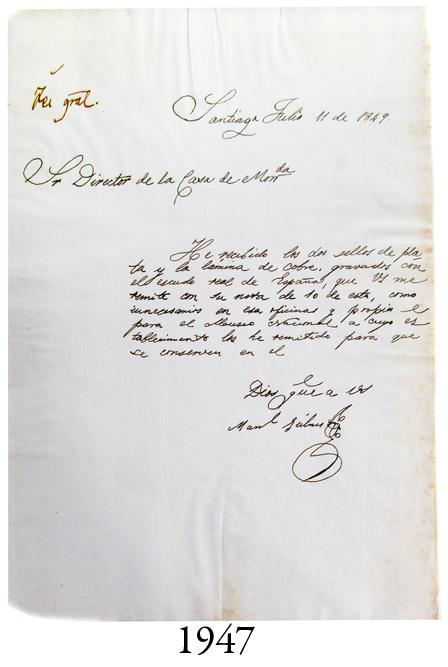 Santiago Julio 11 de 1849.
Sr Director de la Casa de Monda
He recibido los dos sellos de pla
ta y la lámina de cobre, gravados con
el escudo real de España, que VS me
remite con su nota de 10 de este, como
innecesarios en esa oficina y propios
para el Museo Nacional a cuyo es
tablecimiento los he remitido para que
se conserven en el
Dios gue a VS
Manl
1947